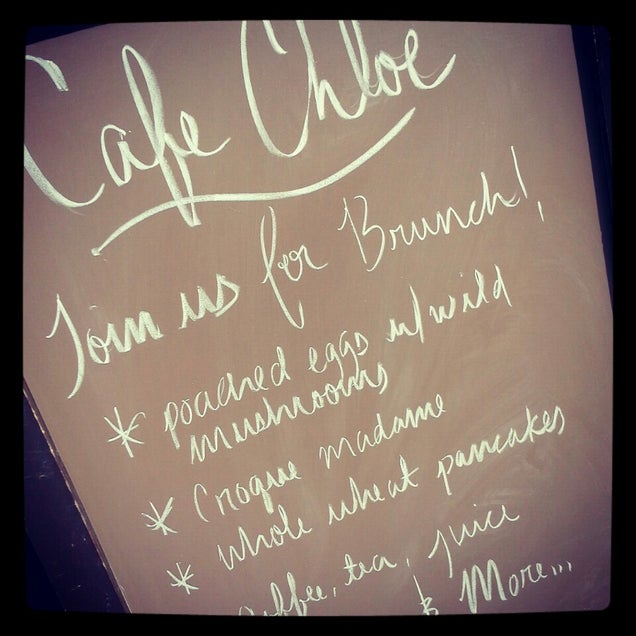 Cafe Chloe
Join us for Brunch!
* poached eggs w/ wild
mushrooms
* Croque Madame
* whole wheat pancakes
coffee, tea, juice
& More...